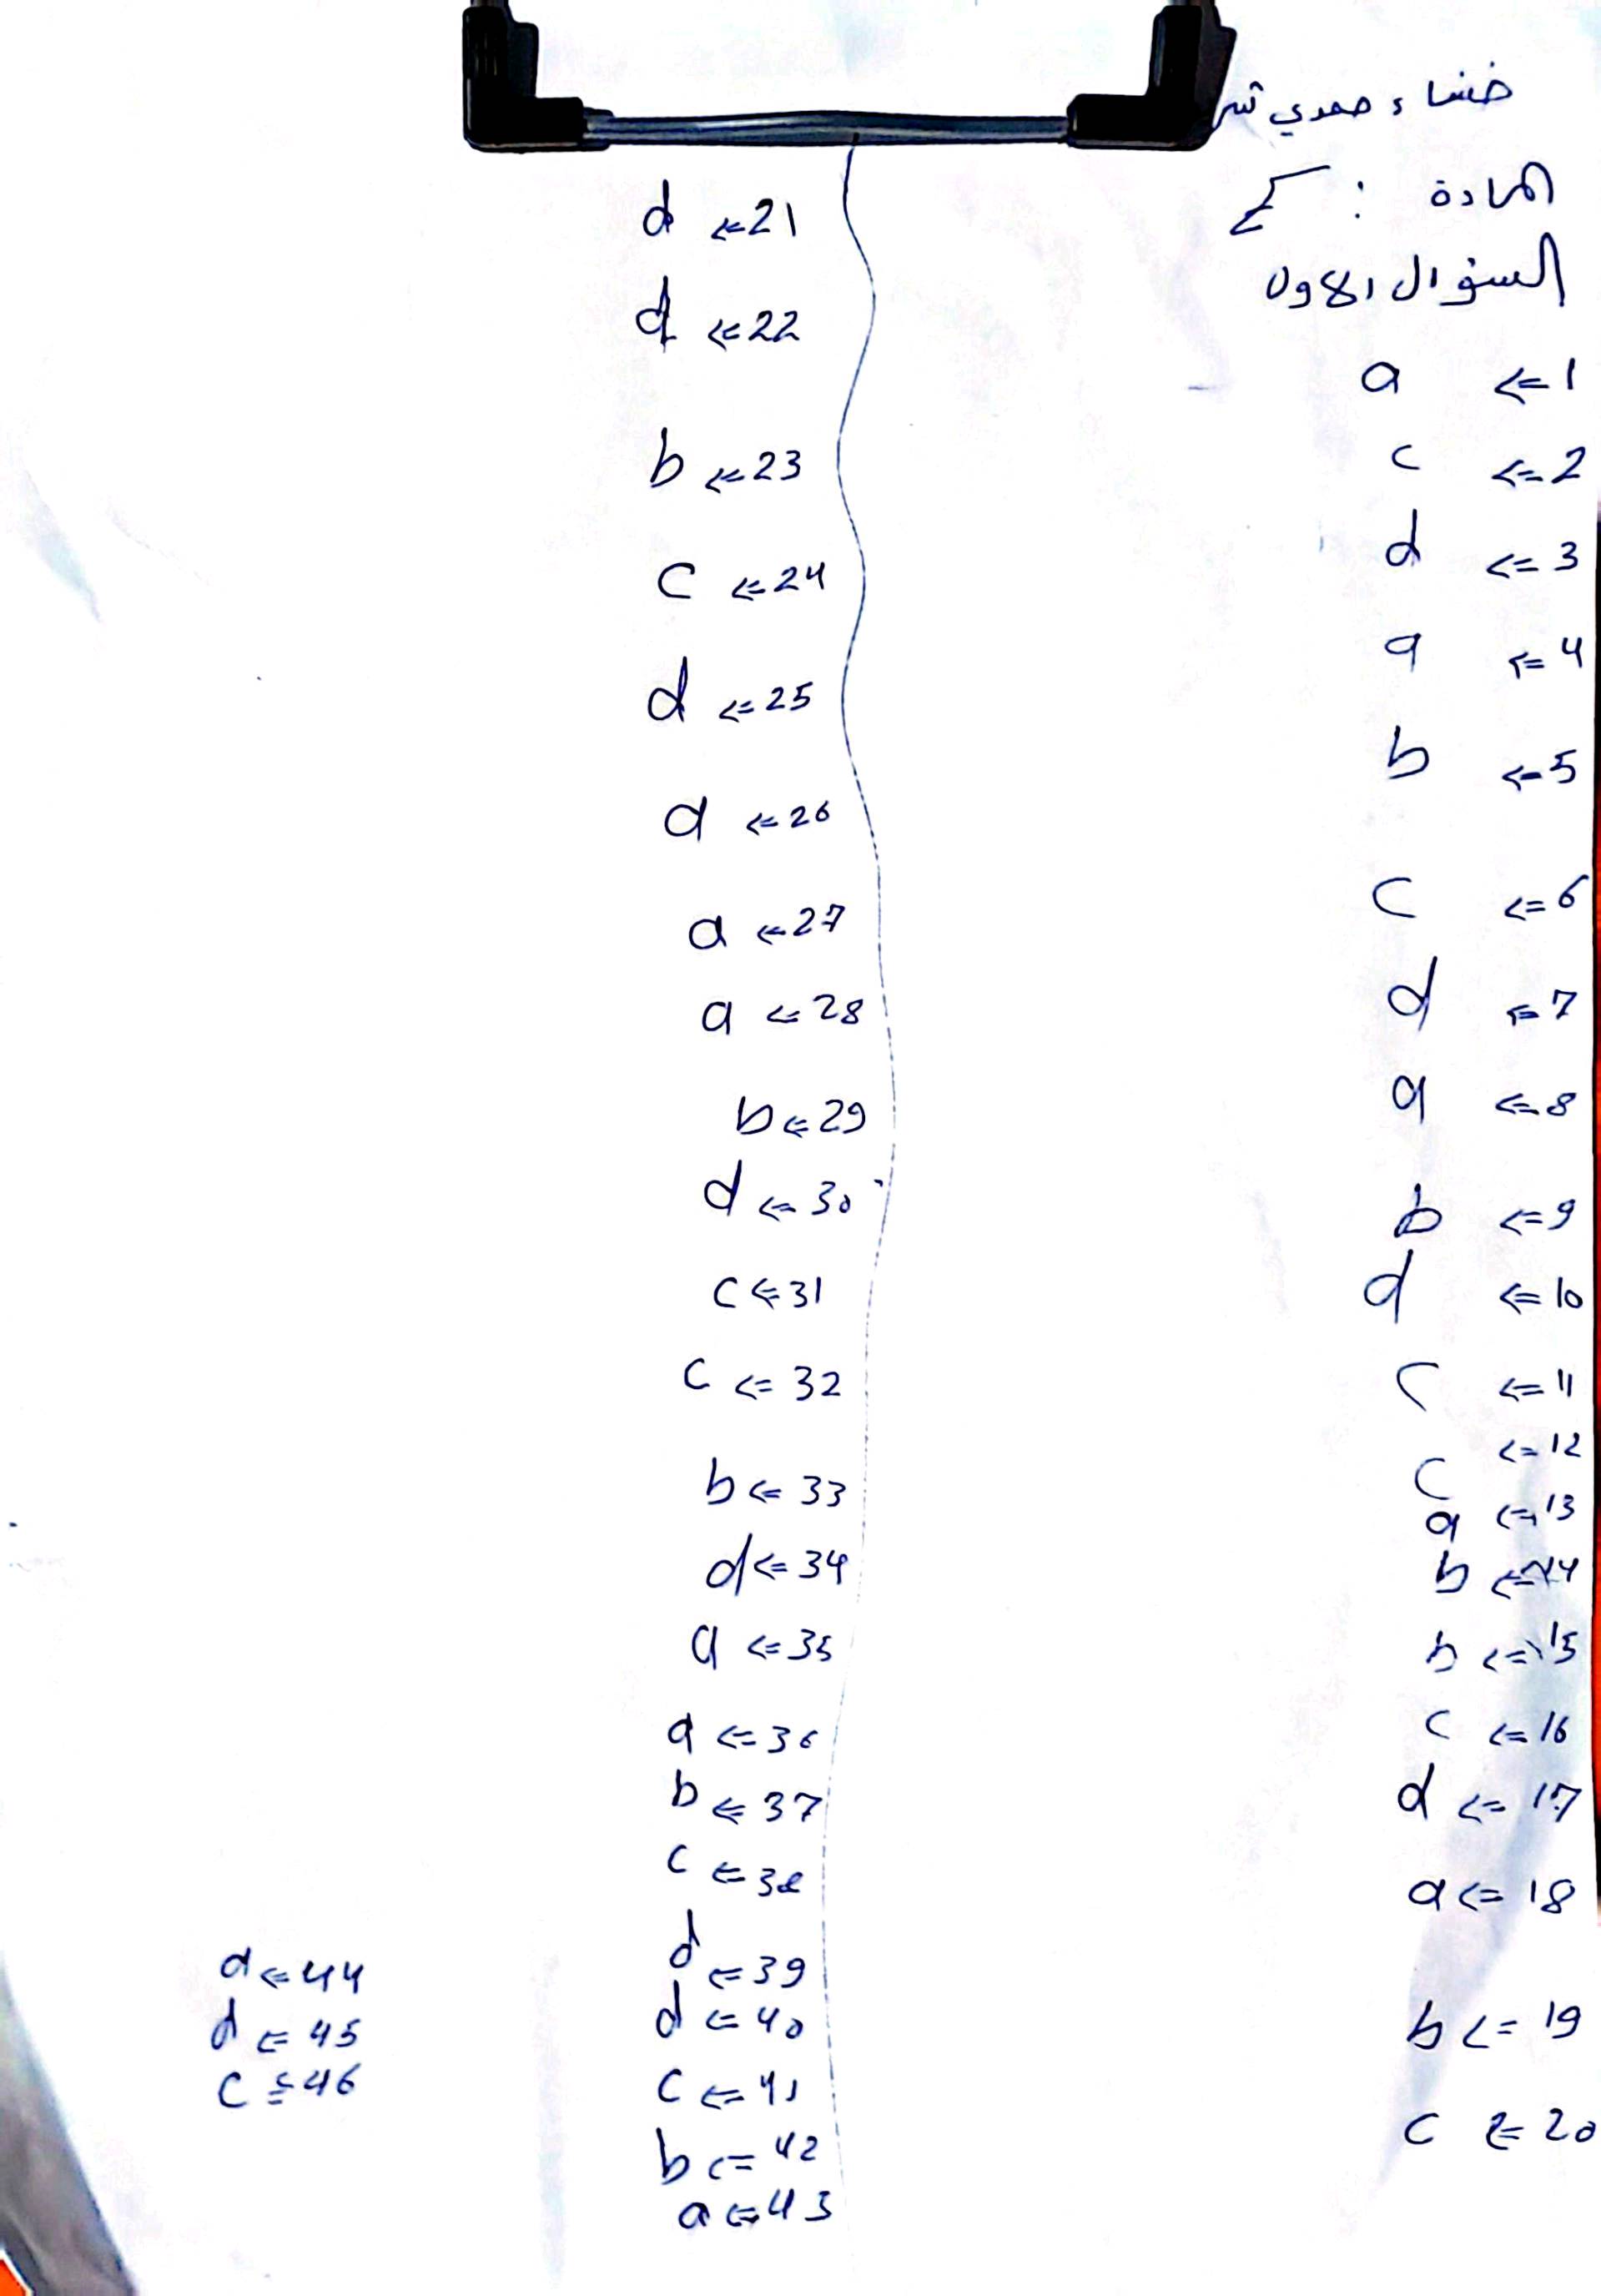 خنساء حمدي
المادة :
السؤال الاول
a <= 1
c <= 2
d <= 3
a <= 4
b <= 5
c <= 6
d <= 7
a <= 8
b <= 9
d <= 10
c <= 11
c <= 12
a <= 13
b <= 14
b <= 15
c <= 16
d <= 17
a <= 18
b <= 19
c <= 20
d <= 21
d <= 22
b <= 23
c <= 24
d <= 25
<= 26
a <= 27
a <= 28
b <= 29
d <= 30
c <= 31
c <= 32
b <= 33
d <= 34
a <= 35
a <= 36
b <= 37
c <= 38
d <= 39
d <= 40
c <= 41
b <= 42
a <= 43
<= 44
d <= 45
c <= 46